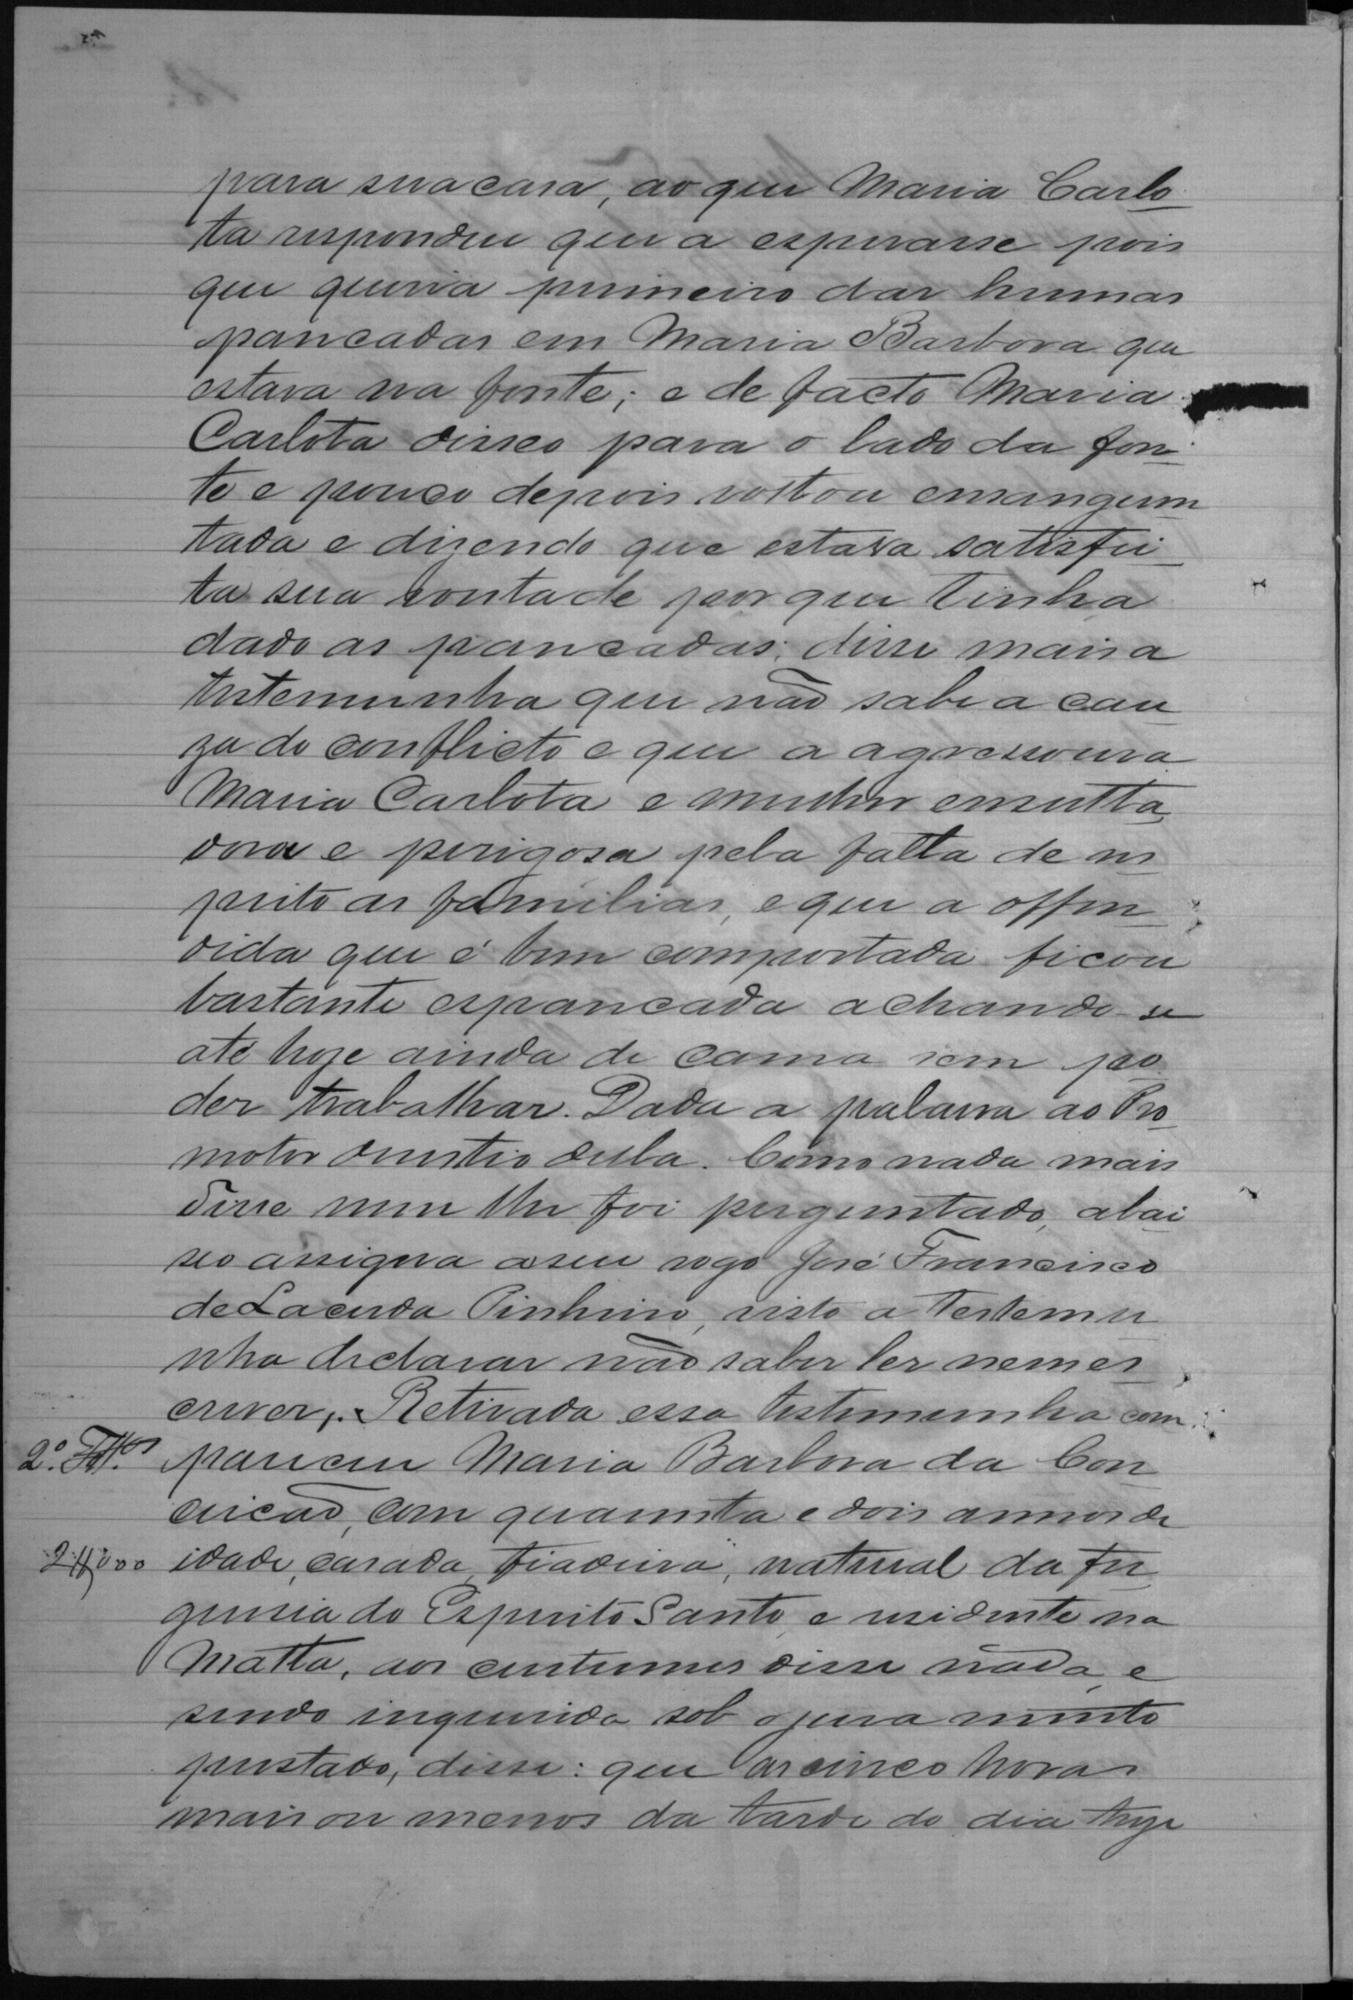 para sua casa, ao que Maria Carlo
ta respondeu que a esperasse pois
que queria primeiro dar humas
pancadas em Maria Barbosa que
estava na fonte; e de facto Maria
Carlota disseo para o lado da fon
te e pouco depois voltou ensanguen
tada e dizendo que estava satisfei
ta sua vontade por que tinha
dado as pancadas; disse mais a
testemunha que não sabe a cau
za do conflicto e que a agressoura
Maria Carlota e mulher ensulta
dora e perigosa pela falta de res
peito as familias, e que a offen
dida que é bem comportada ficou
bastante espancada achando-se
até hoje ainda de cama sem po
der trabalhar. Dada a palavra ao Pro
motor desistio della. Como nada mais
disse nem lhe foi perguntado, abai
xo assigna a seu rogo José Francisco
de Lacerda Pinheiro, visto a testemu
nha declarar não saber ler nem es
crever,. Retirada essa testemunha com
2ª. Ttª. pareceu Maria Barbosa da Con
ceicão, com quarenta e dois annos de
2$000 idade, casada, fiadeira, natural da fre
guesia do Espirito Santo, e residente na
Matta, aos custumes disse nada, e
sendo inquerida sob o juramento
prestado, disse: que as cinco horas
mais ou menos da tarde do dia treze